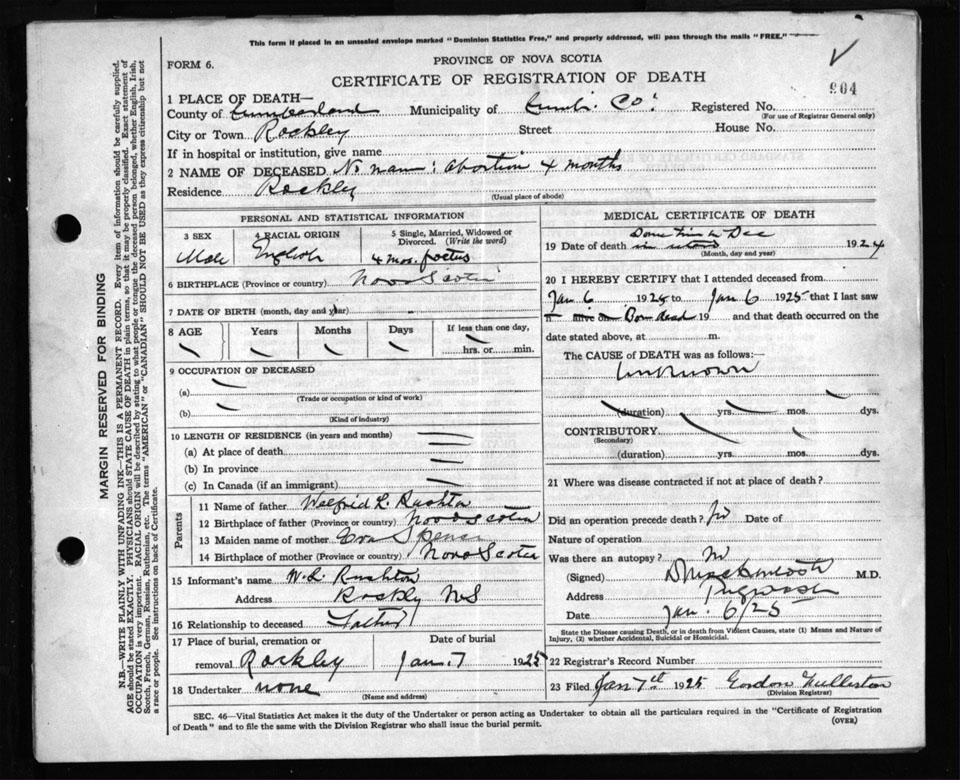 This form if placed in an unsealed envelope marked "Dominion Statistics Free," and properly addressed, will pass through the mails "FREE."
FORM 6.
PROVINCE OF NOVA SCOTIA
CERTIFICATE OF REGISTRATION OF DEATH
904
1 PLACE OF DEATH—
County of Cumberland Municipality of Cumb. Co. Registered No.
(For use of Registrar General only)
City or Town Rockley Street House No.
If in hospital or institution, give name
2 NAME OF DECEASED No name: abortion 4 months
Residence Rockley
(Usual place of abode)
PERSONAL AND STATISTICAL INFORMATION
3 SEX 4 RACIAL ORIGIN 5 Single, Married, Widowed or Divorced. (Write the word)
Male English 4 mos. foetus
6 BIRTHPLACE (Province or country) Nova Scotia
7 DATE OF BIRTH (month, day and year)
8 AGE Years Months Days If less than one day,
hrs. or min.
9 OCCUPATION OF DECEASED
(a)
(Trade or occupation or kind of work)
(b)
(Kind of industry)
10 LENGTH OF RESIDENCE (in years and months)
(a) At place of death
(b) In province
(c) In Canada (if an immigrant)
Parents
11 Name of father Welfrid L. Rushton
12 Birthplace of father (Province or country) Nova Scotia
13 Maiden name of mother Eva Spence
14 Birthplace of mother (Province or country) Nova Scotia
15 Informant's name W. L. Rushton
Address Rockly NS
16 Relationship to deceased Father
17 Place of burial, cremation or removal Rockley
Date of burial Jan. 7 1925
18 Undertaker none
(Name and address)
MEDICAL CERTIFICATE OF DEATH
Some time in Dec
19 Date of death in utero 1924
(Month, day and year)
20 I HEREBY CERTIFY that I attended deceased from
Jan 6 1925 to Jan 6 1925 that I last saw
alive on Born dead 19 and that death occurred on the
date stated above, at m.
The CAUSE OF DEATH was as follows:—
Unknown
(duration) yrs. mos. dys.
CONTRIBUTORY
(Secondary)
(duration) yrs. mos. dys.
21 Where was disease contracted if not at place of death?
Did an operation precede death? No Date of
Nature of operation
Was there an autopsy? No
(Signed) D Mackintosh M.D.
Address Pugwash
Date Jan. 6/25
State the Disease causing Death, or in death from Violent Causes, state (1) Means and Nature of
Injury, (2) whether Accidental, Suicidal or Homicidal.
22 Registrar's Record Number
23 Filed Jan 7th 1925 Gordon
(Division Registrar)
SEC. 46—Vital Statistics Act makes it the duty of the Undertaker or person acting as Undertaker to obtain all the particulars required in the "Certificate of Registration
of Death" and to file the same with the Division Registrar who shall issue the burial permit.
(OVER)
MARGIN RESERVED FOR BINDING
N.B.—WRITE PLAINLY WITH UNFADING INK—THIS IS A PERMANENT RECORD. Every item of information should be carefully supplied.
AGE should be stated EXACTLY. PHYSICIANS should STATE CAUSE OF DEATH in plain terms, so that it may be properly classified. Exact statement of
OCCUPATION is very important. RACIAL ORIGIN will be described by stating to what people or tongue the deceased person belonged, whether English, Irish,
Scotch, French, German, Russian, Ruthenian, etc. The terms "AMERICAN" or "CANADIAN" SHOULD NOT BE USED as they express citizenship but not
a race or people. See instructions on back of Certificate.